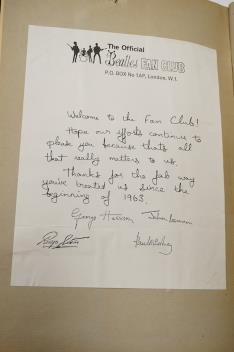 The Official
Beatles FAN CLUB
P.O. BOX No 1AP, London, W.1.
Welcome to the Fan Club!
Hope our efforts continue to
please you because thats all
that really matters to us.
Thanks for the fab way
you've treated us since the
beginning of 1963.
George Harrison John Lennon
Ringo Starr Paul McCartney